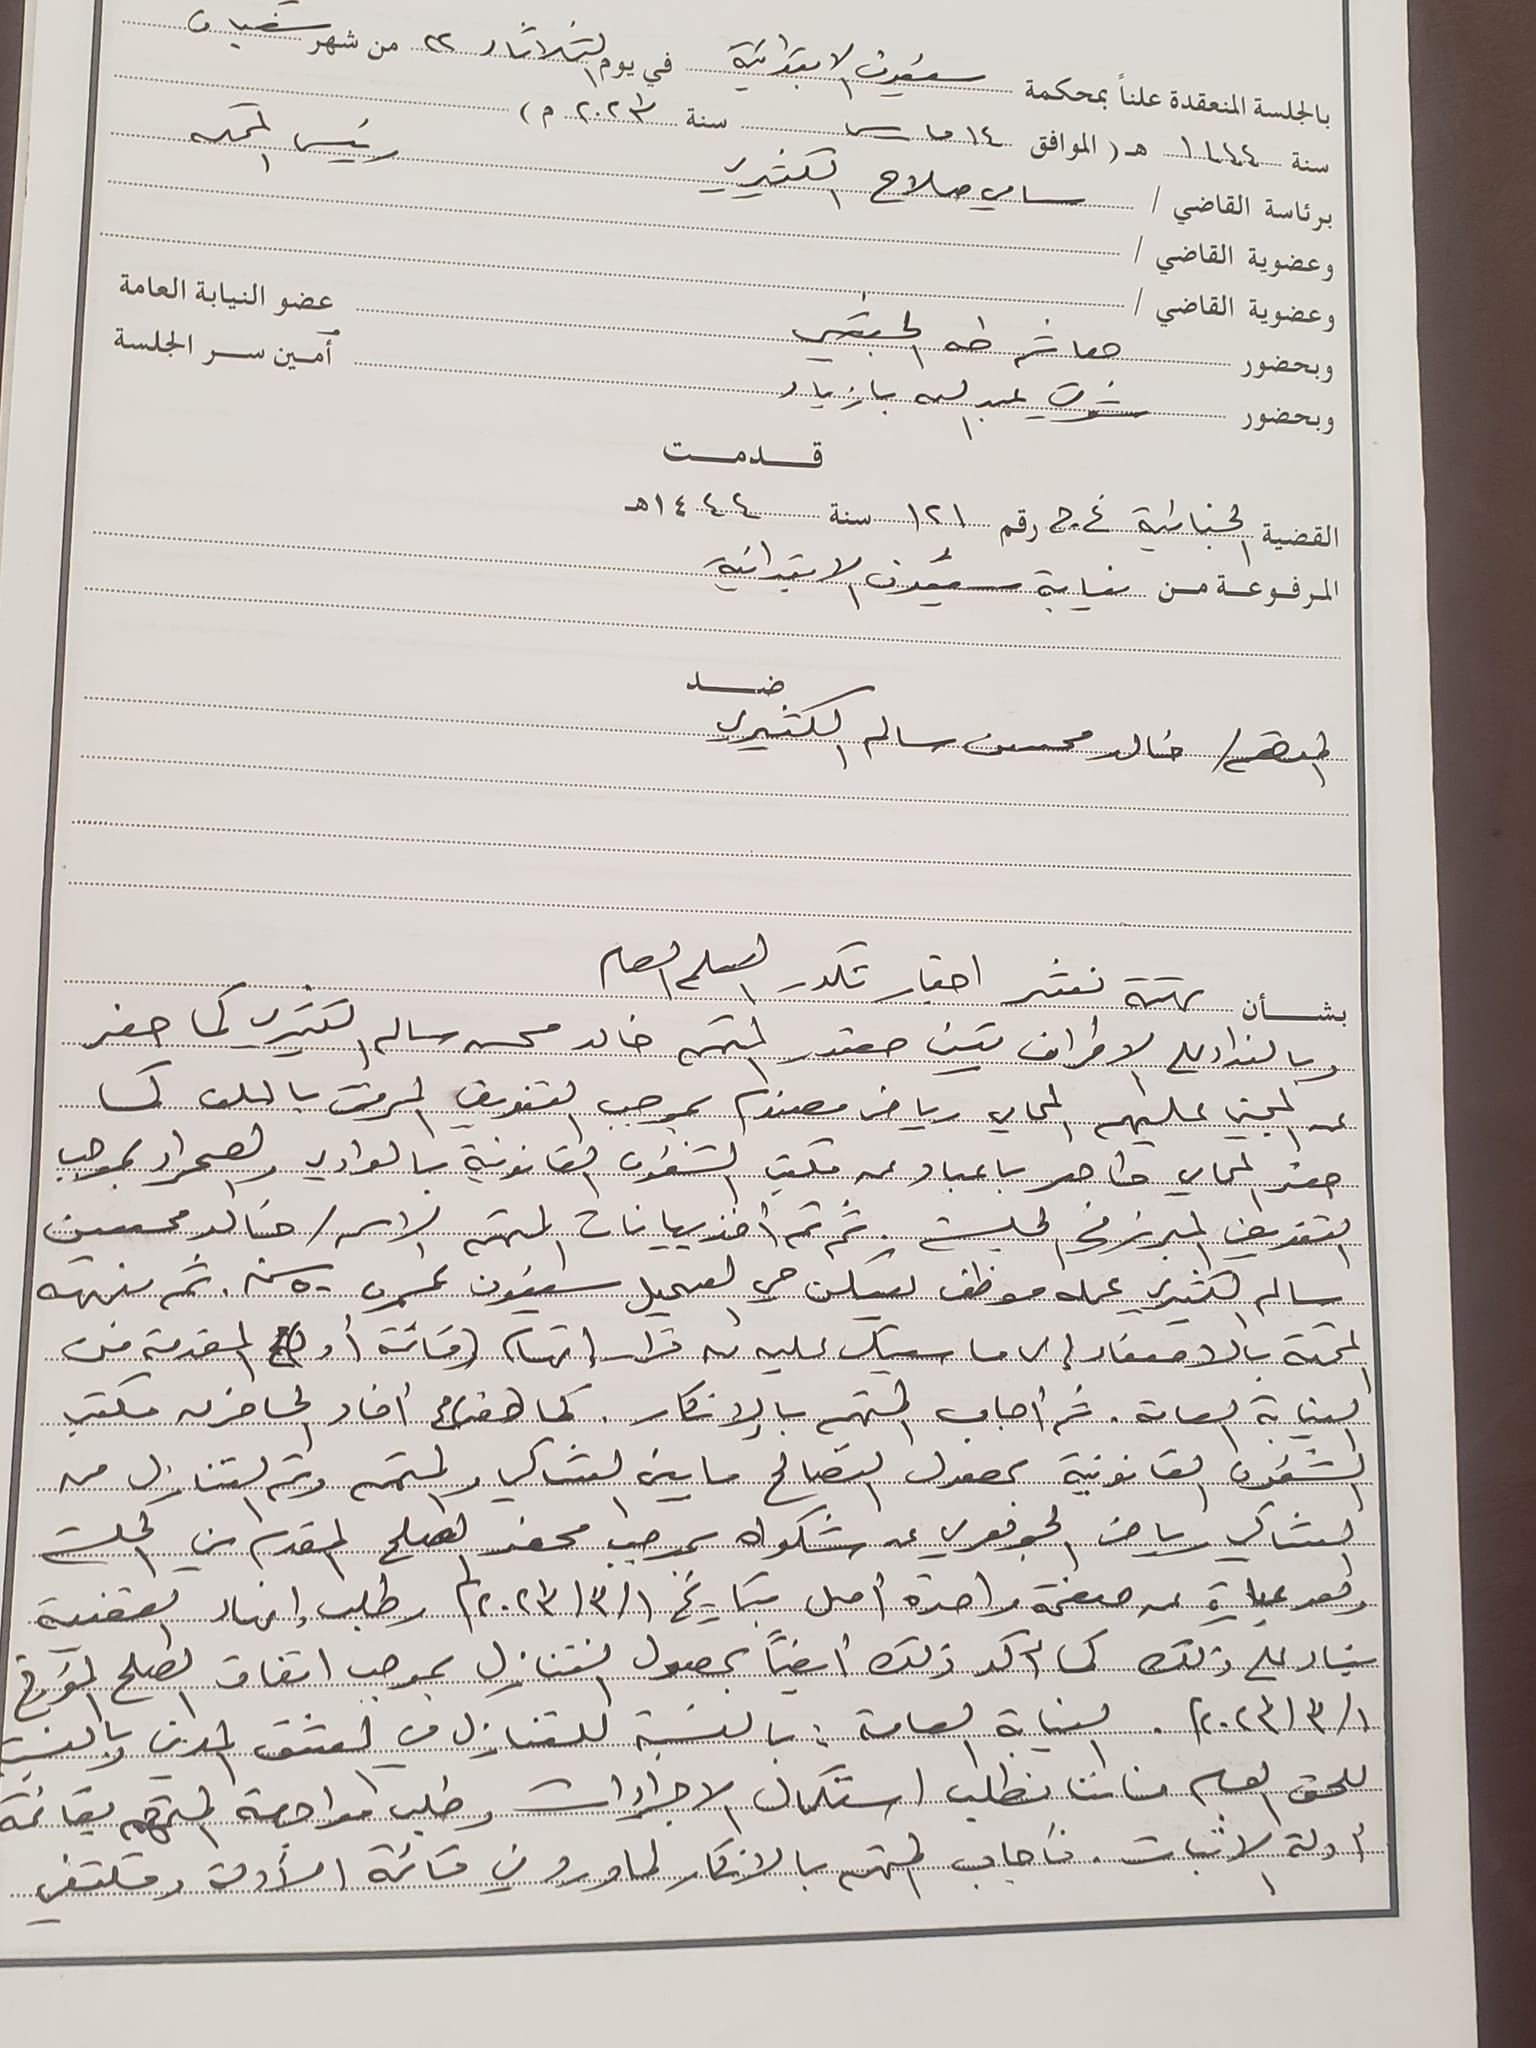 بالجلسة المنعقدة علناً بمحكمة سيئون الابتدائية في يوم الثلاثاء ٢٢ من شهر شعبان
سنة ١٤٤٤ هـ ( الموافق ١٤ مارس سنة ٢٠٢٣ م )
برئاسة القاضي / سامي صلاح الكثيري رئيس المحكمة
وعضوية القاضي /
وعضوية القاضي /
وبحضور طه الحبشي عضو النيابة العامة
وبحضور عبدالله بازياد أمين سر الجلسة
قدمت
القضية الجنائية غ.ج رقم ١٢١ سنة ١٤٤٤هـ
المرفوعة من نيابة سيئون الابتدائية
ضد
المتهم / خالد محسن سالم الكثيري
بشأن تهمة نشر اخبار تكدر السلم العام
وبالنداء على الاطراف تبين حضور المتهم خالد محسن سالم الكثيري كما حضر
عن المجني عليهم المحامي رياض بموجب التفويض المرفق بالملف كما
حضر المحامي باعباد عن مكتب الشئون القانونية بالوادي والصحراء بموجب
التفويض المبرز في الجلسة . ثم تم أخذ بيانات المتهم الاسم / خالد محسن
سالم الكثيري عمله موظف يسكن حي السحيل سيئون عمره ٥٠ سنة . ثم نبهته
المحكمة بالاصغاء إلى ما سيتلى عليه من قرار إتهام وقائمة أدلة المقدمة من
النيابة العامة . ثم أجاب المتهم بالإنكار . كما أفاد الحاضر عن مكتب
الشئون القانونية بحصول التصالح ما بين الشاكي والمتهم وتم التنازل من
الشاكي رياض الجهوري عن شكواه بموجب محضر الصلح المقدم في الجلسة
وهو عبارة عن صفحة واحدة أصل بتاريخ ٢٠٢٣/٣/١م وطلب إنهاء القضية
بناء على ذلك كما أكد ذلك أيضاً بحصول التنازل بموجب اتفاق الصلح المؤرخ
٢٠٢٣/٣/١م . النيابة العامة : بالنسبة للتنازل في الشق المدني وبالنسبة
للحق العام فاننا نطلب استكمال الاجراءات وطلب مواجهة المتهم بقائمة
أدلة الاثبات . فأجاب المتهم بالانكار لما ورد في قائمة الأدلة ونكتفي